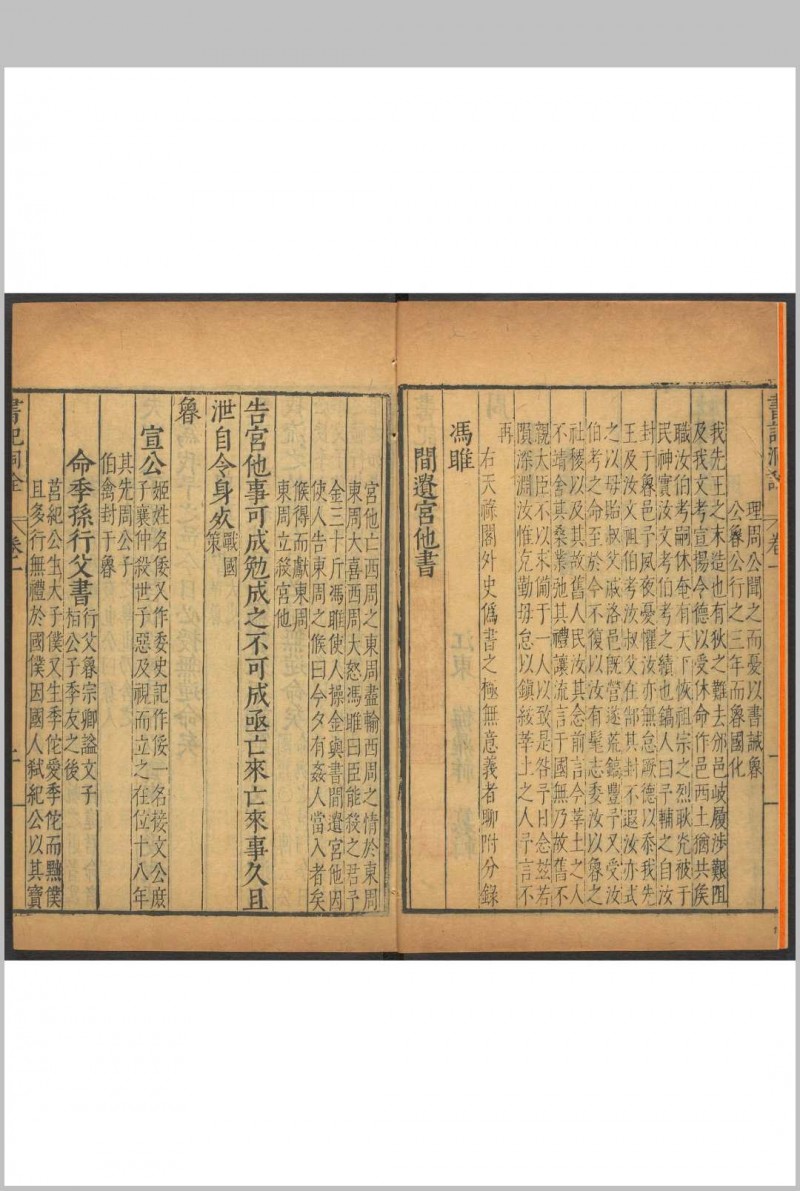 書記洞詮 卷一
理周公聞之而憂以書誡魯
公魯公行之三年而魯國化
我先王之末造也有狄之難去邠邑岐履涉艱阻
及我文考宣揚令德以受休命作邑西土猶共侯
職汝伯考嗣休奄有天下恢祖宗之烈耿光被于
民神實汝文考伯考之績也鎬人曰予輔之自汝
封于魯邑予夙夜憂懼汝亦無怠厥德以忝我先
王及汝文祖伯考汝叔父在郜其封不遐汝亦式
之以毋貽叔父戚洛邑旣營遂荒鎬豐予又受汝
伯考之命至於今不復以汝有髦志委汝以魯之
社稷以及其故舊人民汝其念前言今莘土之人
不靖舍其桑業弛其禮讓流言于國無乃故舊不
親大臣不以來備于一人以致是咎予日念兹若
隕深淵汝惟克勤毋怠以鎮綏莘土之人予言不
再
右天祿閣外史僞書之極無意義者聊附分錄
馮睢
間遺宮他書
宮他亡西周之東周盡輸西周之情於東周
東周大喜西周大怒馮睢曰臣能殺之君予
金三十斤馮睢使人操金與書間遺宮他因
使人告東周之候曰今夕有姦人當入者矣
候得而獻東周
東周立殺宮他
告宮他事可成勉成之不可成亟亡來亡來事久且
泄自令身死戰國策
魯
宣公姬姓名倭又作委史記作俀一名接文公庶
子襄仲殺世子惡及視而立之在位十八年
其先周公子
伯禽封于魯
命季孫行父書行父魯宗卿謚文子
桓公子季友之後
莒紀公生大子僕又生季佗愛季佗而黜僕
且多行無禮於國僕因國人弒紀公以其寶
書記洞詮 卷一